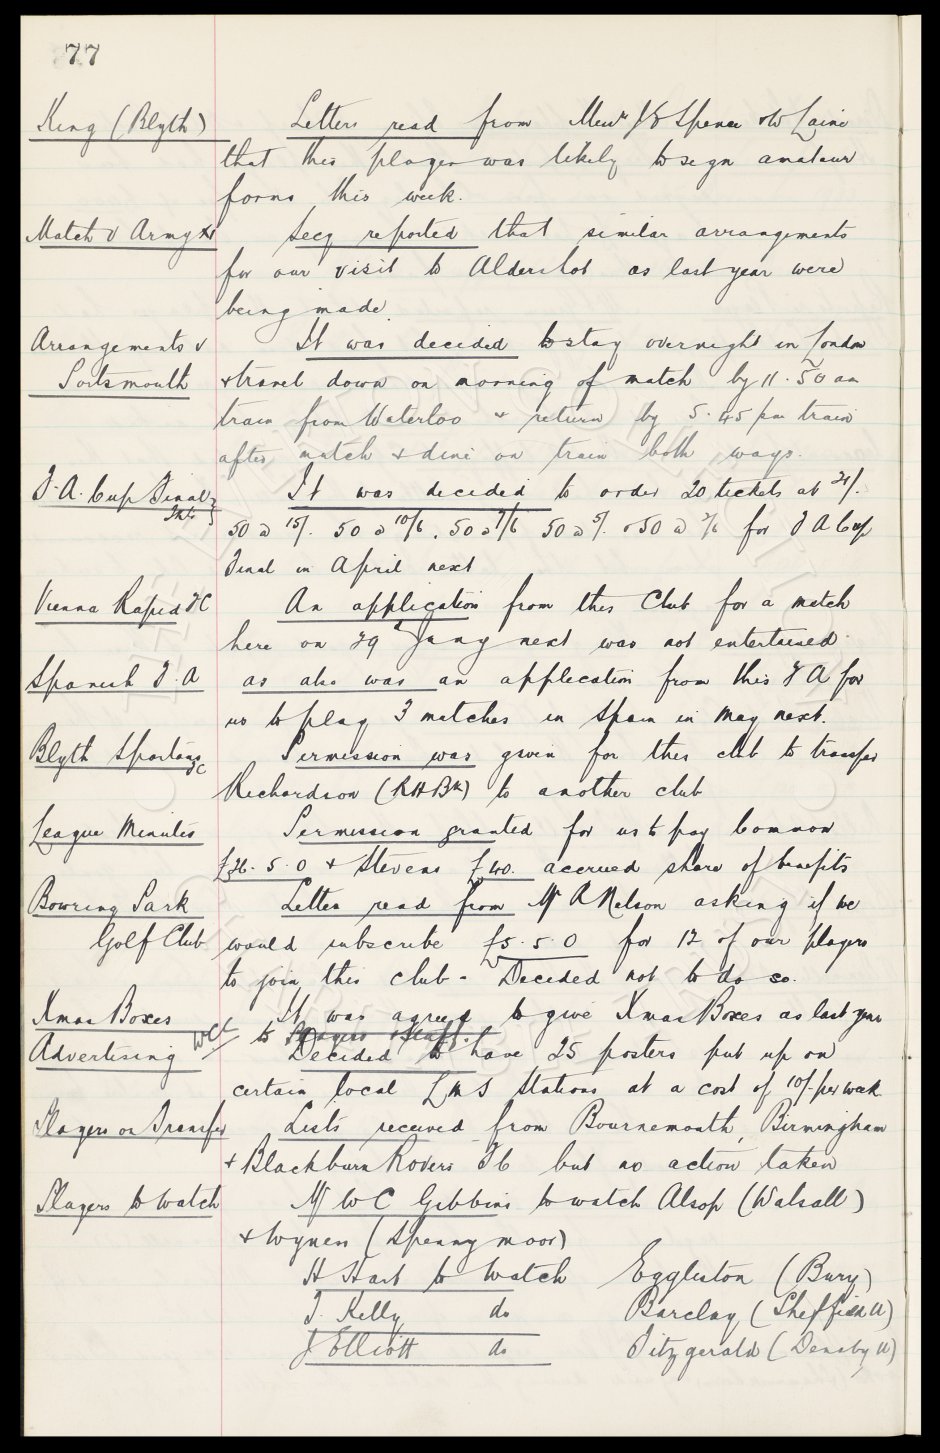 77
King (Blyth) Letters read from Messrs J S Spence & W Laine
that this player was likely to sign amateur
forms this week.
Match v Army Secy reported that similar arrangements
for our visit to Aldershot as last year were
being made.
Arrangements v It was decided to stay overnight in London
Portsmouth & travel down on morning of match by 11.50 am
train from Waterloo & return by 5.45 pm train
after match & dine on train both ways.
F.A. Cup Final It was decided to order 20 tickets at 21/-
Tkts 50 @ 15/- 50 @ 10/6, 50 @ 7/6 50 @ 5/- & 50 @ 2/6 for F A Cup
Final in April next
Vienna Rapid FC An application from this Club for a match
here on 29 Jany next was not entertained
Spanish F.A as also was an application from this F A for
us to play 3 matches in Spain in May next.
Blyth Spartans FC Permission was given for this club to transfer
Richardson (RH Bk) to another club
League Minutes Permission granted for us to pay Common
£26.5.0 & Stevens £40. accrued share of benefits
Bowring Park Letter read from Mr A Nelson asking if we
Golf Club would subscribe £5.5.0 for 12 of our players
to join this club - Decided not to do so.
Xmas Boxes It was agreed to give Xmas Boxes as last year
to Players & Staff.
Advertising Decided to have 25 posters put up on
certain local LMS Stations at a cost of 10/- per week
Players on Transfer Lists received from Bournemouth, Birmingham
& Blackburn Rovers Fc but no action taken
Players to watch Mr W C Gibbins to watch Alsop (Walsall)
& Wynen (Spennymoor)
H Hart to watch Eggleston (Bury)
T. Kelly do Barclay (Sheffield U)
J Elliott do Fitzgerald (Denaby U)